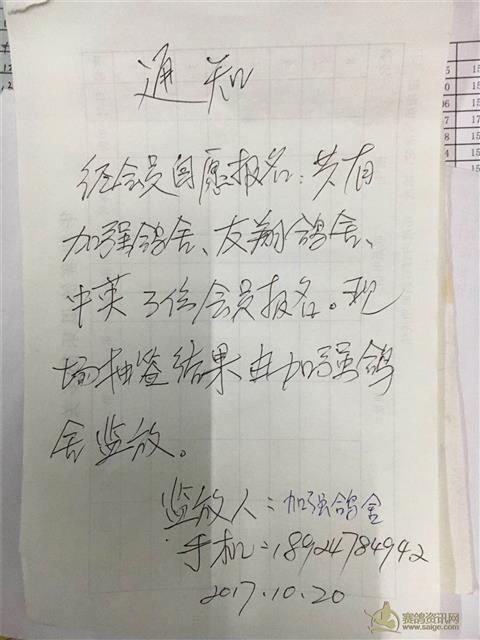 通知
经会员自愿报名：共有
加强鸽舍、友翔鸽舍、
中英3位会员报名。现
场抽签结果由加强鸽
舍监放。
监放人：加强鸽舍
手机：18924784942
2017.10.20
赛鸽资讯网
www.saige.com